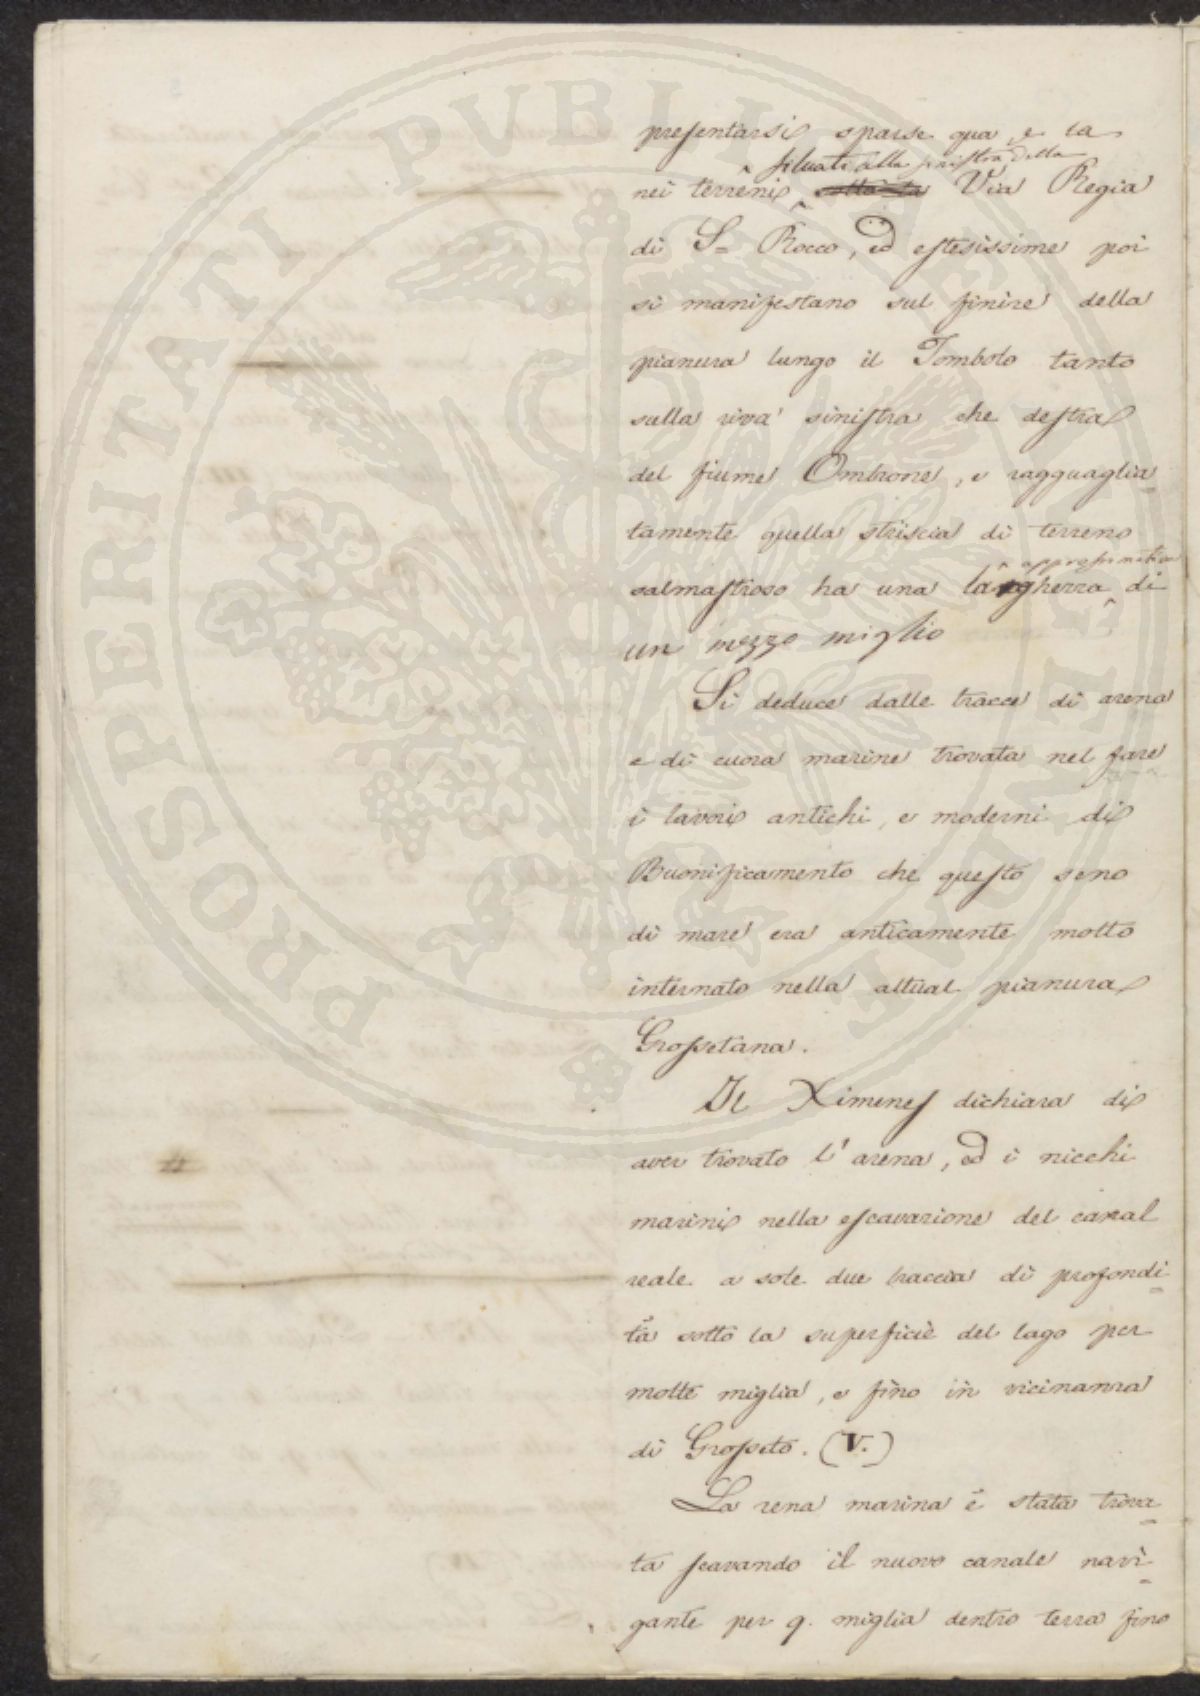 PROSPERITATI PUBLICAE
presentarsi sparse qua, e la
situati alla sinistra della
nei terreni sotto la Via Regia
di S= Rocco, ed estesissime poi
si manifestano sul finire della
pianura lungo il Tombolo tanto
sulla riva sinistra che destra
del fiume Ombrone, e ragguaglia=
tamente quella striscia di terreno
approssimativa
salmastroso ha una larghezza di
un mezzo miglio
Si deduce dalle tracce di arena
e di cuora marine trovata nel fare
i lavori antichi, e moderni di
Buonificamento che questo seno
di mare era anticamente molto
internato nella attual pianura
Grossetana.
Il Ximenes dichiara di
aver trovato l'arena, ed i nicchi
marini nella escavazione del canal
reale a sole due braccia di profondi=
tà sotto la superficie del lago per
molte miglia, e fino in vicinanza
di Grosseto. (V.)
La rena marina è stata trova=
ta scavando il nuovo canale navi=
gante per 9. miglia dentro terra fino